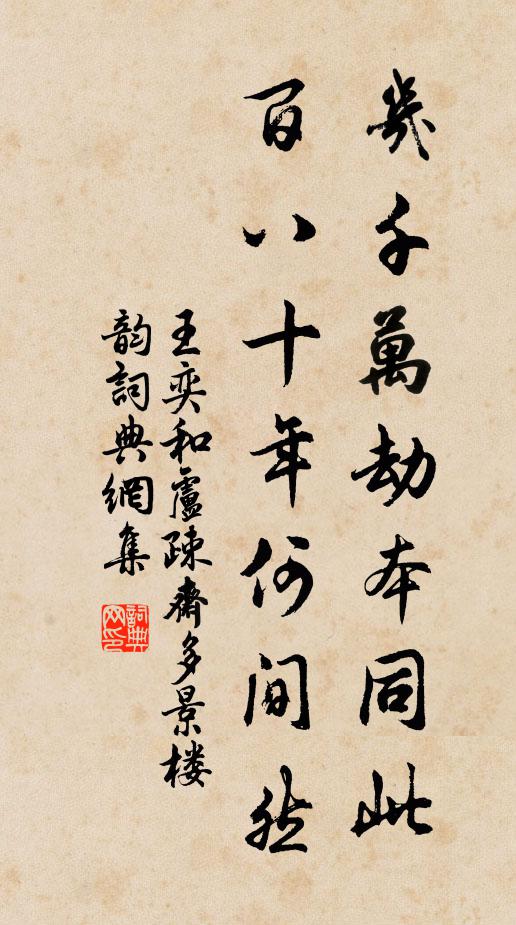 幾千萬劫本同此
百八十年何間然
王奕和盧疎齋多景楼
韵詞典網集
詞典網印